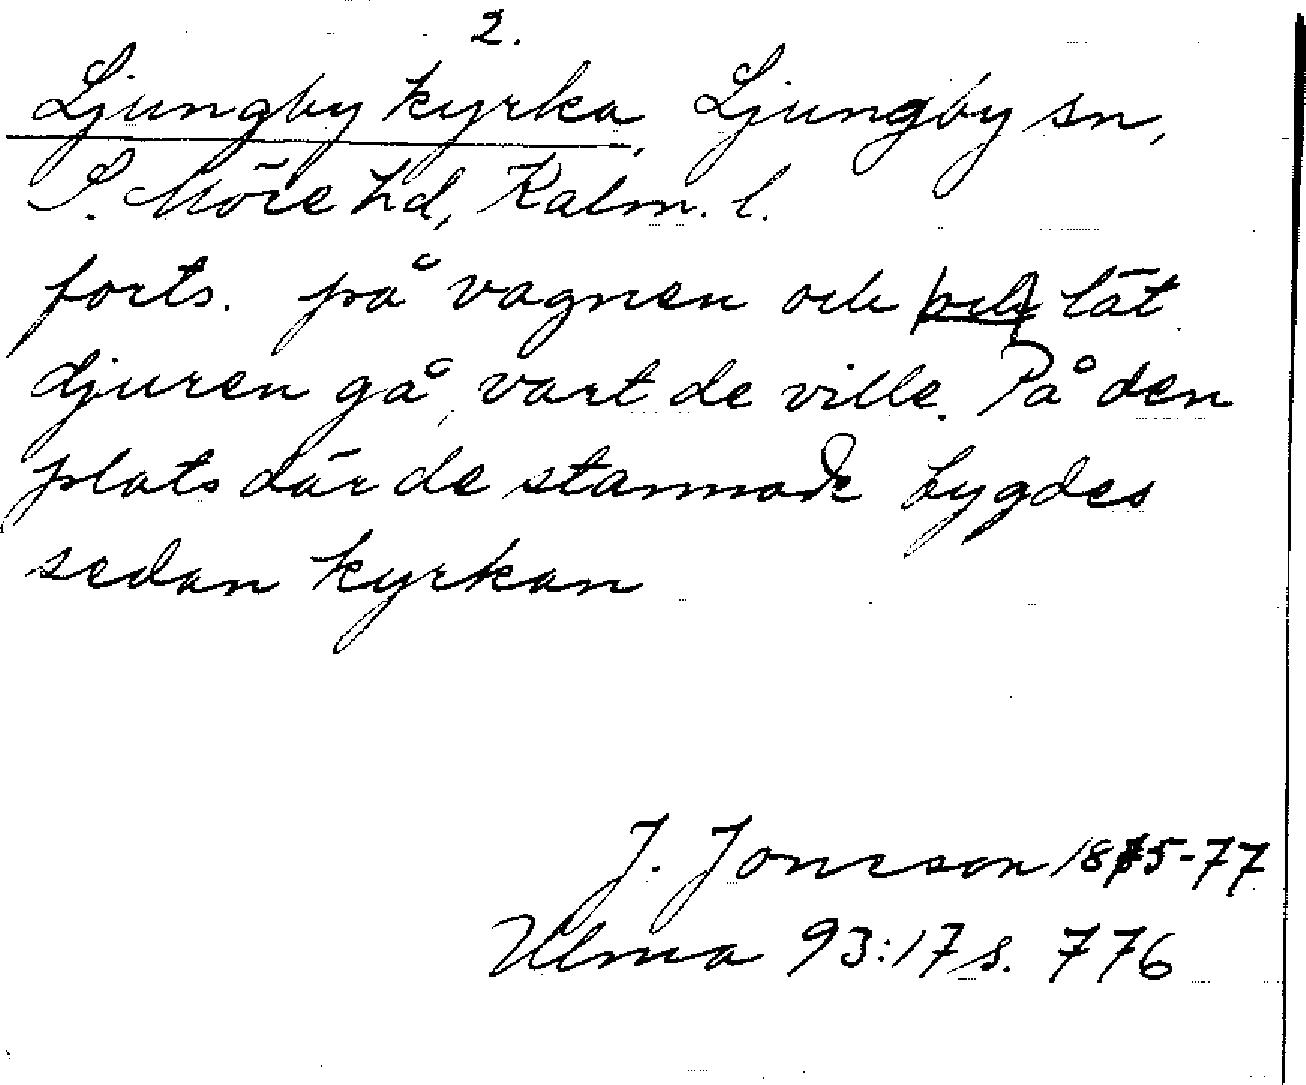 2.
Ljungby kyrka, Ljungby sn,
S. Möre hd, Kalm. l.
forts. på vagnen och och låt
djuren gå, vart de ville. På den
plats där de stannade bygdes
sedan kyrkan
J. Jonsson 1875-77
Ulma 93:17 s. 776